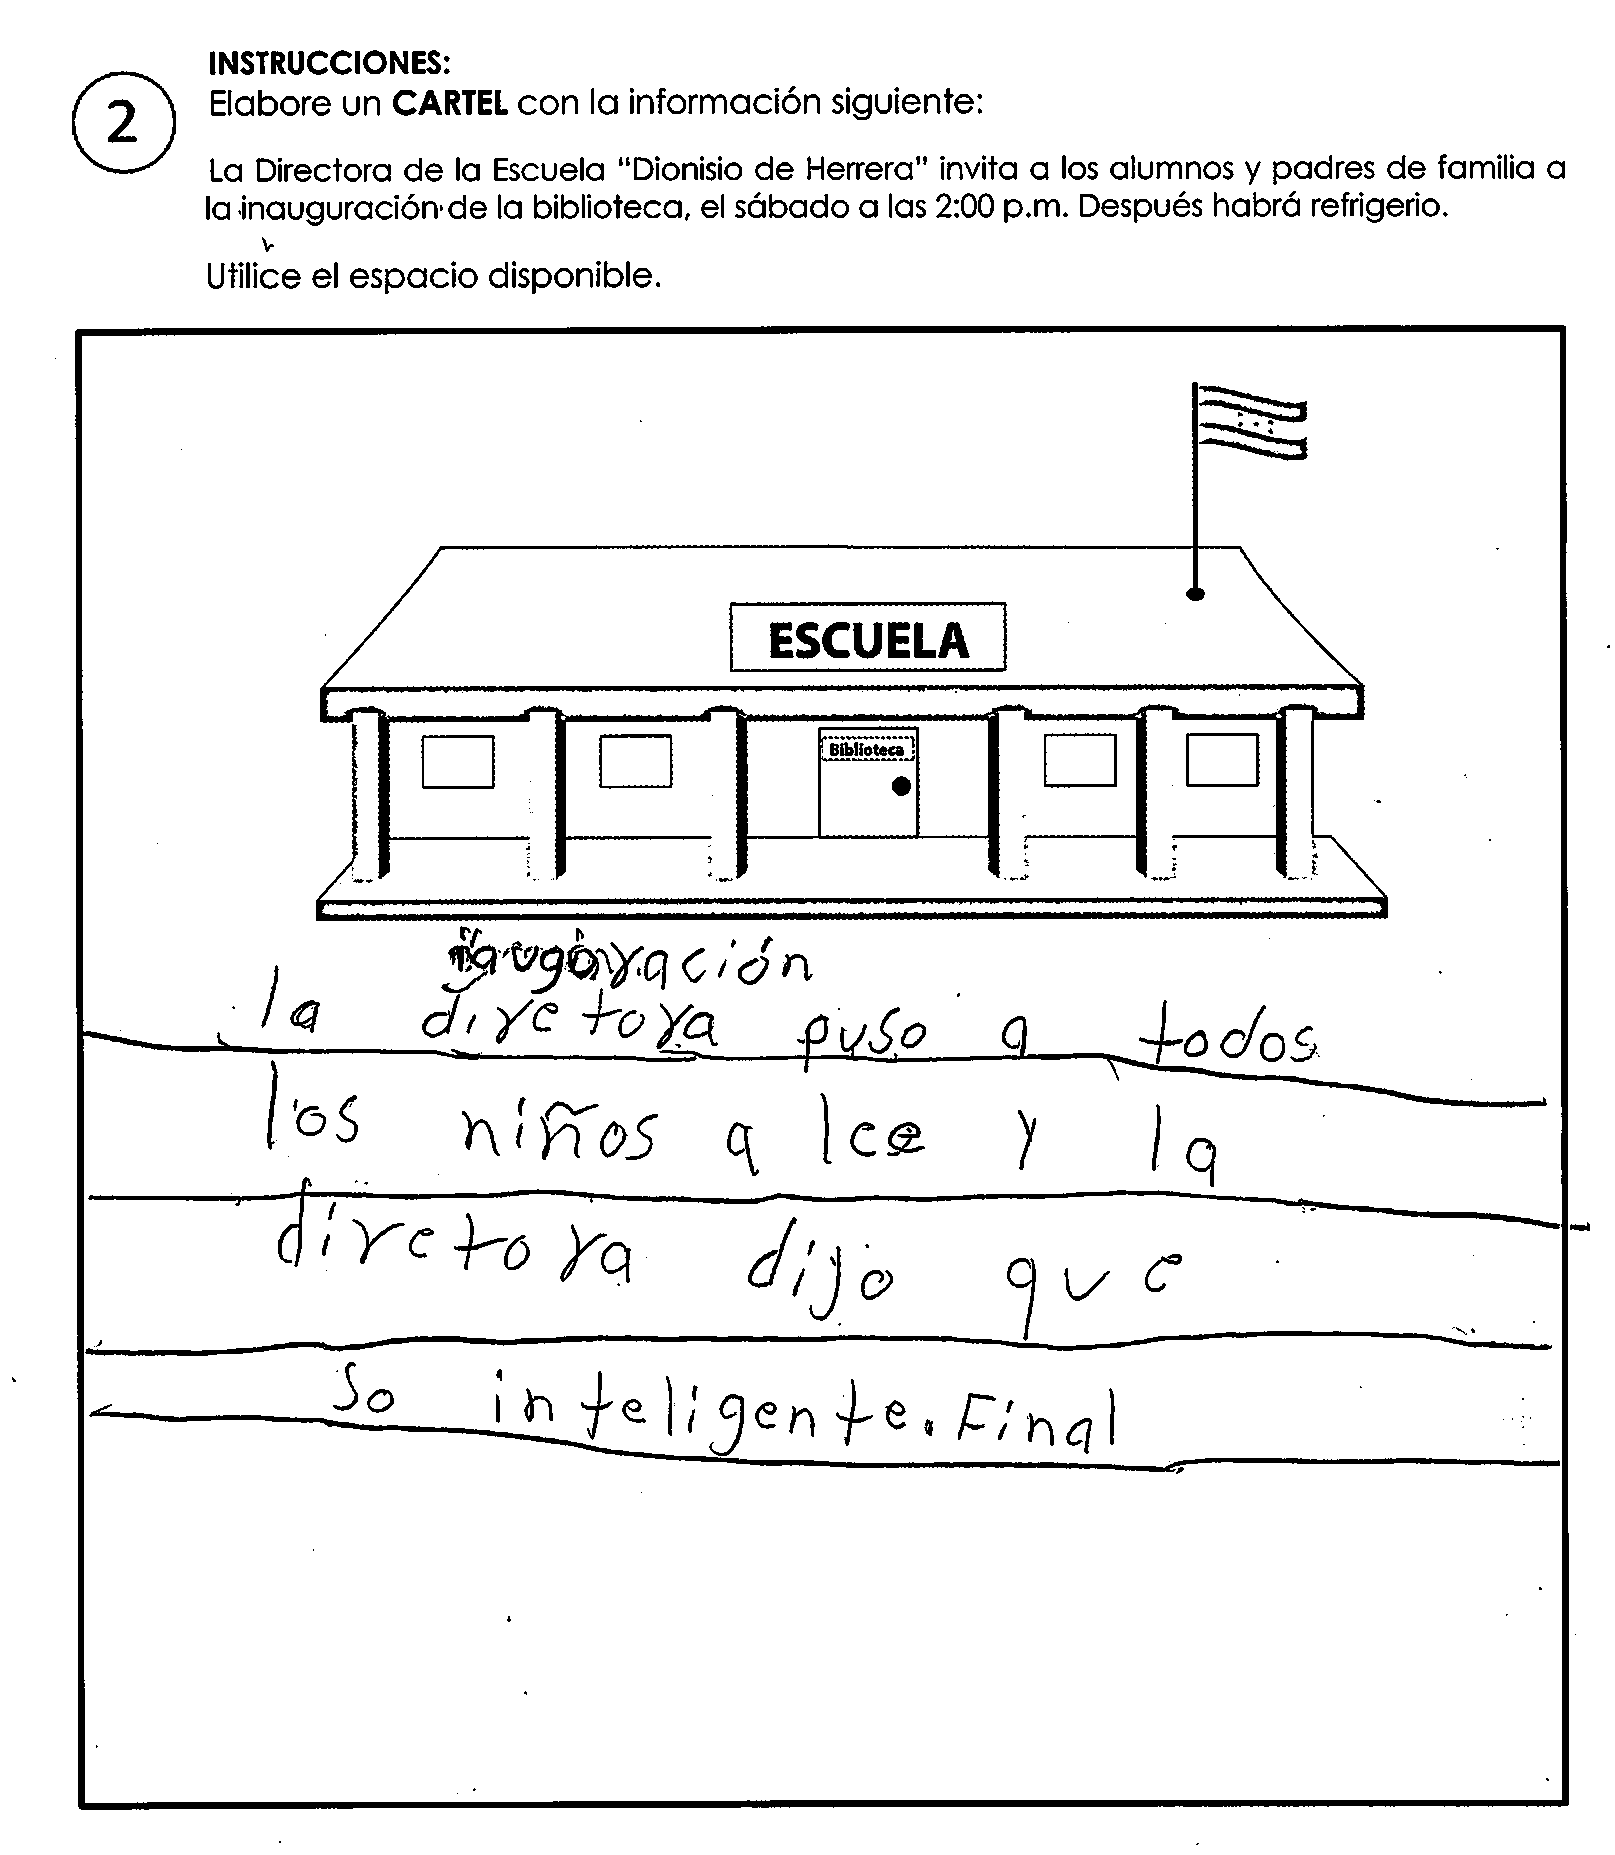 INSTRUCCIONES:
2
Elabore un CARTEL con la información siguiente:
La Directora de la Escuela "Dionisio de Herrera" invita a los alumnos y padres de familia a
la inauguración de la biblioteca, el sábado a las 2:00 p.m. Después habrá refrigerio.
Utilice el espacio disponible.
ESCUELA
Biblioteca
la diretora puso a todos
los niños a lee y la
diretora dijo que
so inteligente. Final